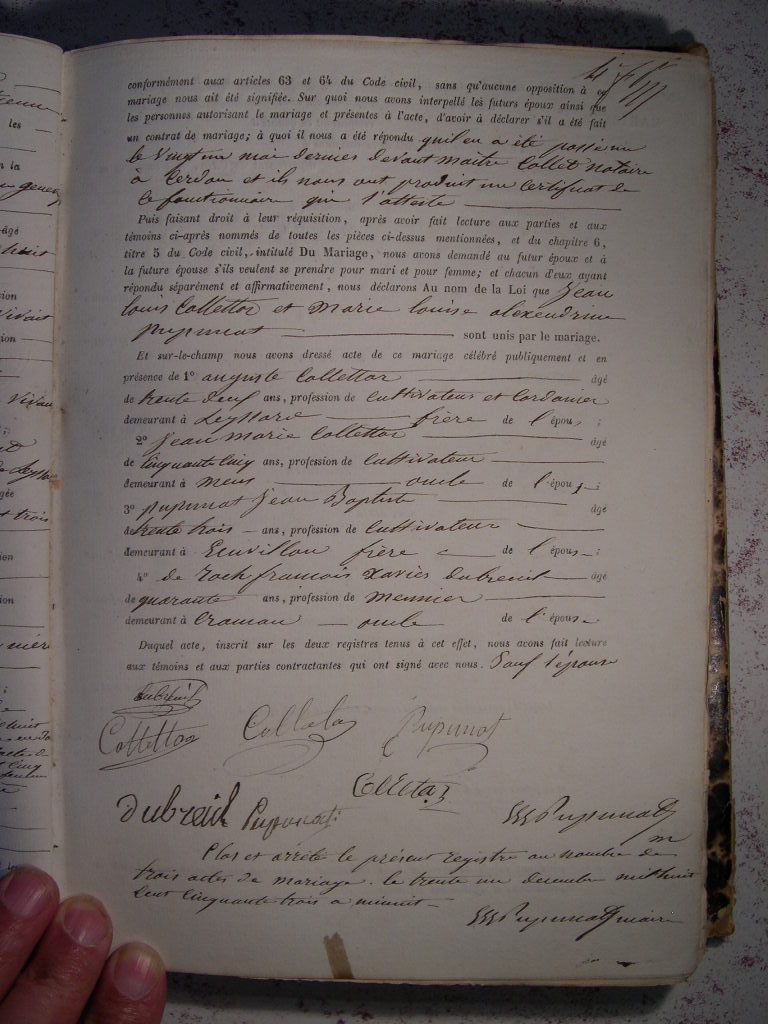 conformément aux articles 63 et 64 du Code civil, sans qu'aucune opposition à ce
mariage nous ait été signifiée. Sur quoi nous avons interpellé les futurs époux ainsi que
les personnes autorisant le mariage et présentes à l'acte, d'avoir à déclarer s'il a été fait
un contrat de mariage; à quoi il nous a été répondu qu'il en a été passé un
le vingt un mai dernier devant maître Collet notaire
à Cerdon et ils nous ont produit un certificat de
ce fonctionnaire qui l'atteste
Puis faisant droit à leur réquisition, après avoir fait lecture aux parties et aux
témoins ci-après nommés de toutes les pièces ci-dessus mentionnées, et du chapitre 6,
titre 5 du Code civil, intitulé Du Mariage, nous avons demandé au futur époux et à
la future épouse s'ils veulent se prendre pour mari et pour femme; et chacun d'eux ayant
répondu séparément et affirmativement, nous déclarons Au nom de la Loi que Jean
Louis Collettaz et marie louise alexendrine
pupunat sont unis par le mariage.
Et sur-le-champ nous avons dressé acte de ce mariage célébré publiquement et en
présence de 1° auguste Collettaz âgé
de trente deuf ans, profession de Cultivateur et Cordonier
demeurant à Leyssard frère de l'épous ;
2° Jean marie Collettaz âgé
de Cinquante Cinq ans, profession de Cultivateur
demeurant à mens oncle de l'épou ;
3° pupunat Jean Baptiste âgé
de trente trois ans, profession de Cultivateur
demeurant à Ecuvillon frère de l'épous ;
4° de roch francois xavier dubreuil âgé
de quarante ans, profession de meunier
demeurant à Craman oncle de l'épous
Duquel acte, inscrit sur les deux registres tenus à cet effet, nous avons fait lecture
aux témoins et aux parties contractantes qui ont signé avec nous. Sauf l'épouse
dubreuil
Collettaz Colletaz Pupunat
Colletaz
Dubreuil Pupunat Pupunat
m
Clos et arrêté le présent registre au nombre de
trois actes de mariage. le trente un decembre mil huit
Cent Cinquante trois a minuit
Pupunat maire